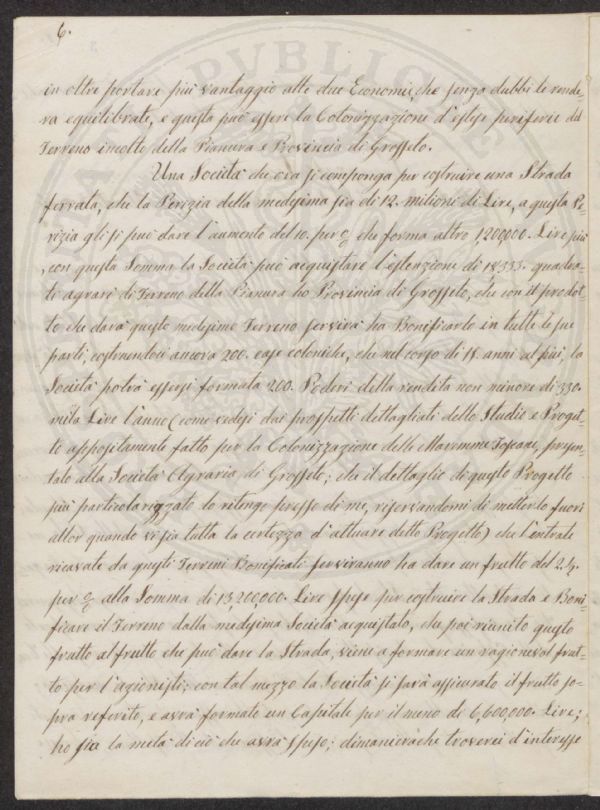 6.
in oltre portare più vantaggio alle due Economie, che senza dubbi le rende-
va equilibrate, e questa può essere la Colonizzazione d'estese periferie del
Terreno incolto della Pianura e Provincia di Grosseto.
Una Società che ora si componga per costruire una Strada
ferrata, che la Perizia della medesima sia di 12. milioni di Lire, a questa Pe-
rizia gli si può dare l'aumento del 10. per % che forma altro 1,200,000. Lire più
, con questa Somma la Società può acquistare l'estenzione di 18333. quadra-
ti agrari di Terreno della Pianura ho Provincia di Grosseto, che con il prodot-
to che darà questo medesimo Terreno servirà ha Bonificarlo in tutte le sue
parti, costruendoci ancora 200. case coloniche, che nel corso di 18. anni al più, la
Società potrà essersi formata 200. Poderi della rendita non minore di 330.
mila Lire l'anno (come vedesi dai prospetti dettagliati dello Studio e Proget-
to appositamente fatto per la Colonizzazione delle Maremme Toscane, presen-
tato alla Società Agraria di Grosseto; che il dettaglio di questo Progetto
più particolarizzato lo ritengo presso di me, riservandomi di metterlo fuori
allor quando vi sia tutta la certezza d'attuare detto Progetto) che l'entrate
ricavate da questi Terreni Bonificati serviranno ha dare un frutto del 2 ½
per % alla Somma di 13,200,000. Lire spese per costruire la Strada e Boni-
ficare il Terreno dalla medesima Società acquistato, che poi riunito questo
frutto al frutto che può dare la Strada, viene a formare un ragionevol frut-
to per l'azionisti; con tal mezzo la Società si sarà assicurato il frutto so-
pra referito, e avrà formato un Capitale per il meno di 6,600,000. Lire;
ho sia la metà di ciò che avrà speso; dimanierachè troverei d'interesse